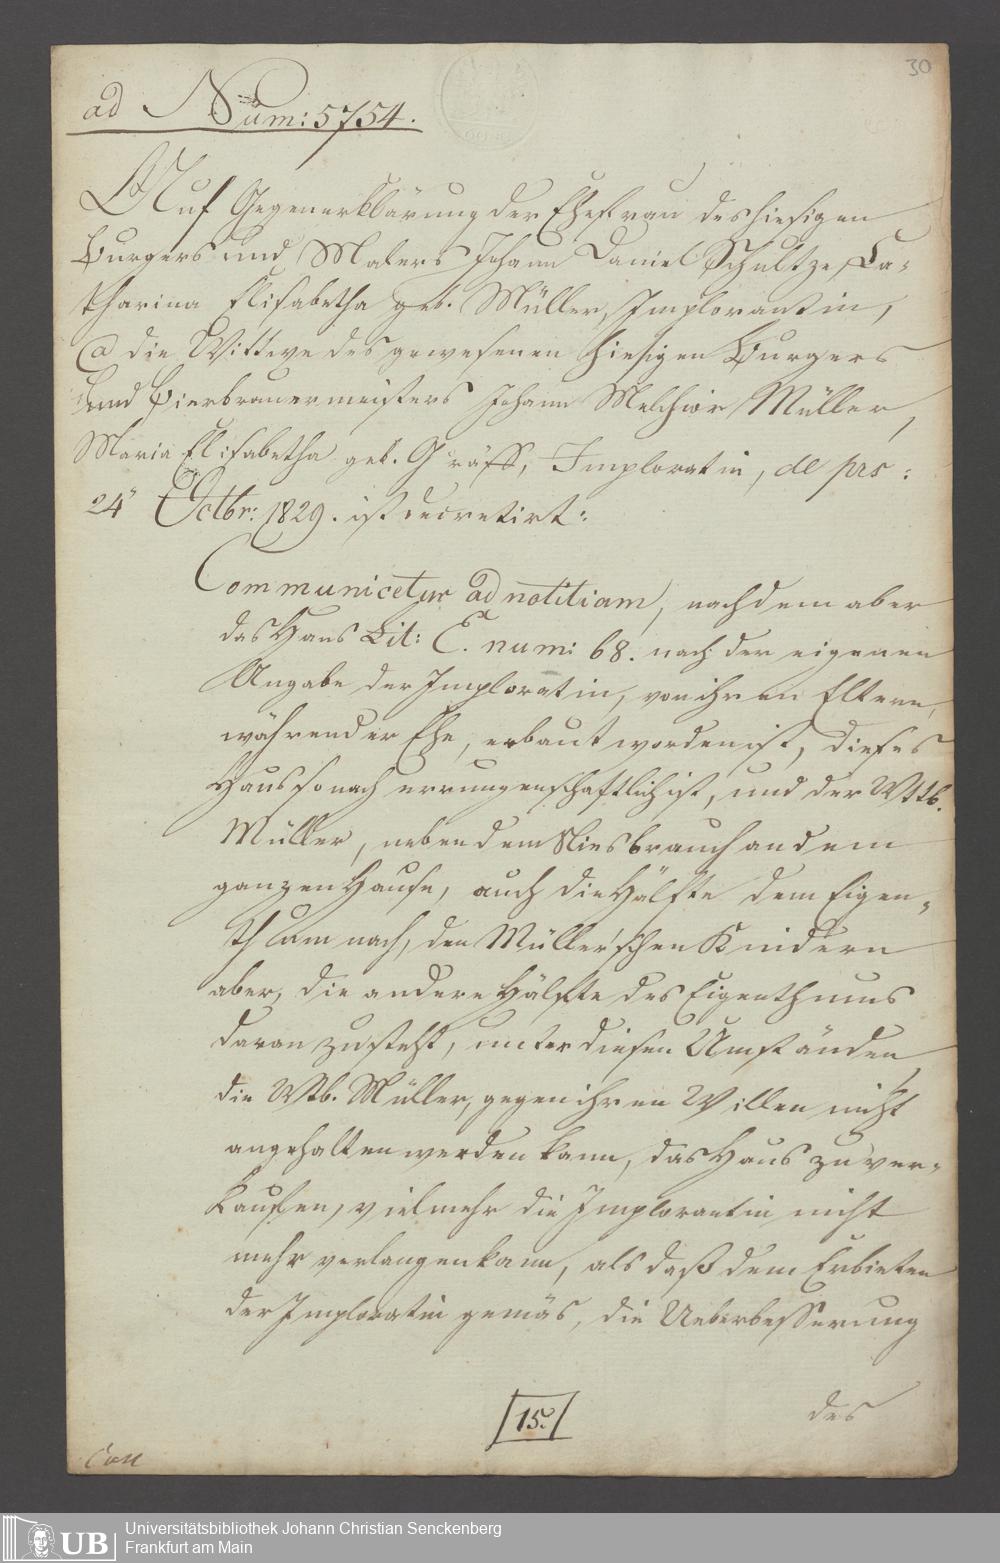 30
ad Num: 5754.
Auf Gegenerklärung der Ehefrau des hiesigen
Burgers und Malers Johann Daniel Schultze, Ca-
tharina Elisabetha geb. Müller, Implorantin,
Ca die Wittwe des gewesenen hiesigen Burgers
und Bierbrauermeisters Johann Melchior Müller,
Maria Elisabetha geb. Gräff, Imploratin, de prs:
24ⁿ Octbr: 1829. ist decretirt:
Communicetur ad notitiam, nachdem aber
das Haus Lit: E. num: 68. nach der eigenen
Angabe der Imploratin, von ihren Eltern,
während der Ehe, erbaut worden ist, dieses
Haus sonach errungenschaftlich ist, und der Wtb.
Müller, neben dem Niesbrauch an dem
ganzen Hause, auch die Hälfte dem Eigen-
thum nach, den Müller'schen Kindern
aber, die andere Hälfte des Eigenthums
daran zusteht, unter diesen Umständen
die Wtb. Müller, gegen ihren Willen nicht
angehalten werden kann, das Haus zu ver-
kaufen, vielmehr die Implorantin nicht
mehr verlangen kann, als daß dem Erbieten
der Imploratin gemäs, die Ueberbesserung
15.
des
Coll
Universitätsbibliothek Johann Christian Senckenberg
UB Frankfurt am Main